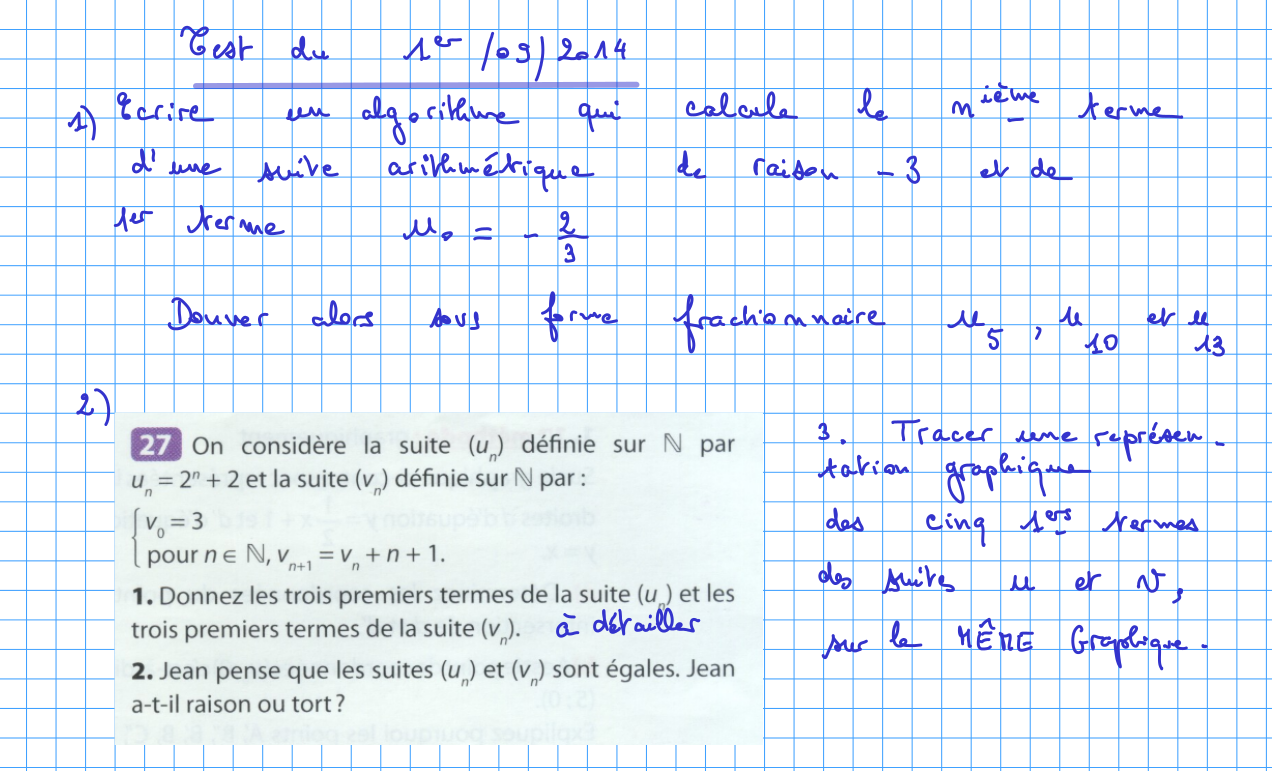 Test du 1er /09/2014
1) Ecrire un algorithme qui calcule le nième terme
d'une suite arithmétique de raison -3 et de
1er terme u₀ = - 2/3
Donner alors sous forme fractionnaire u₅, u₁₀ et u₁₃
2)
27 On considère la suite (uₙ) définie sur ℕ par
uₙ = 2ⁿ + 2 et la suite (vₙ) définie sur ℕ par :
v₀ = 3
pour n ∈ ℕ, vₙ₊₁ = vₙ + n + 1.
1. Donnez les trois premiers termes de la suite (uₙ) et les
trois premiers termes de la suite (vₙ). à détailler
2. Jean pense que les suites (uₙ) et (vₙ) sont égales. Jean
a-t-il raison ou tort ?
3. Tracer une représen-
tation graphique
des cinq 1ers termes
des suites u et v,
sur le MÊME Graphique.